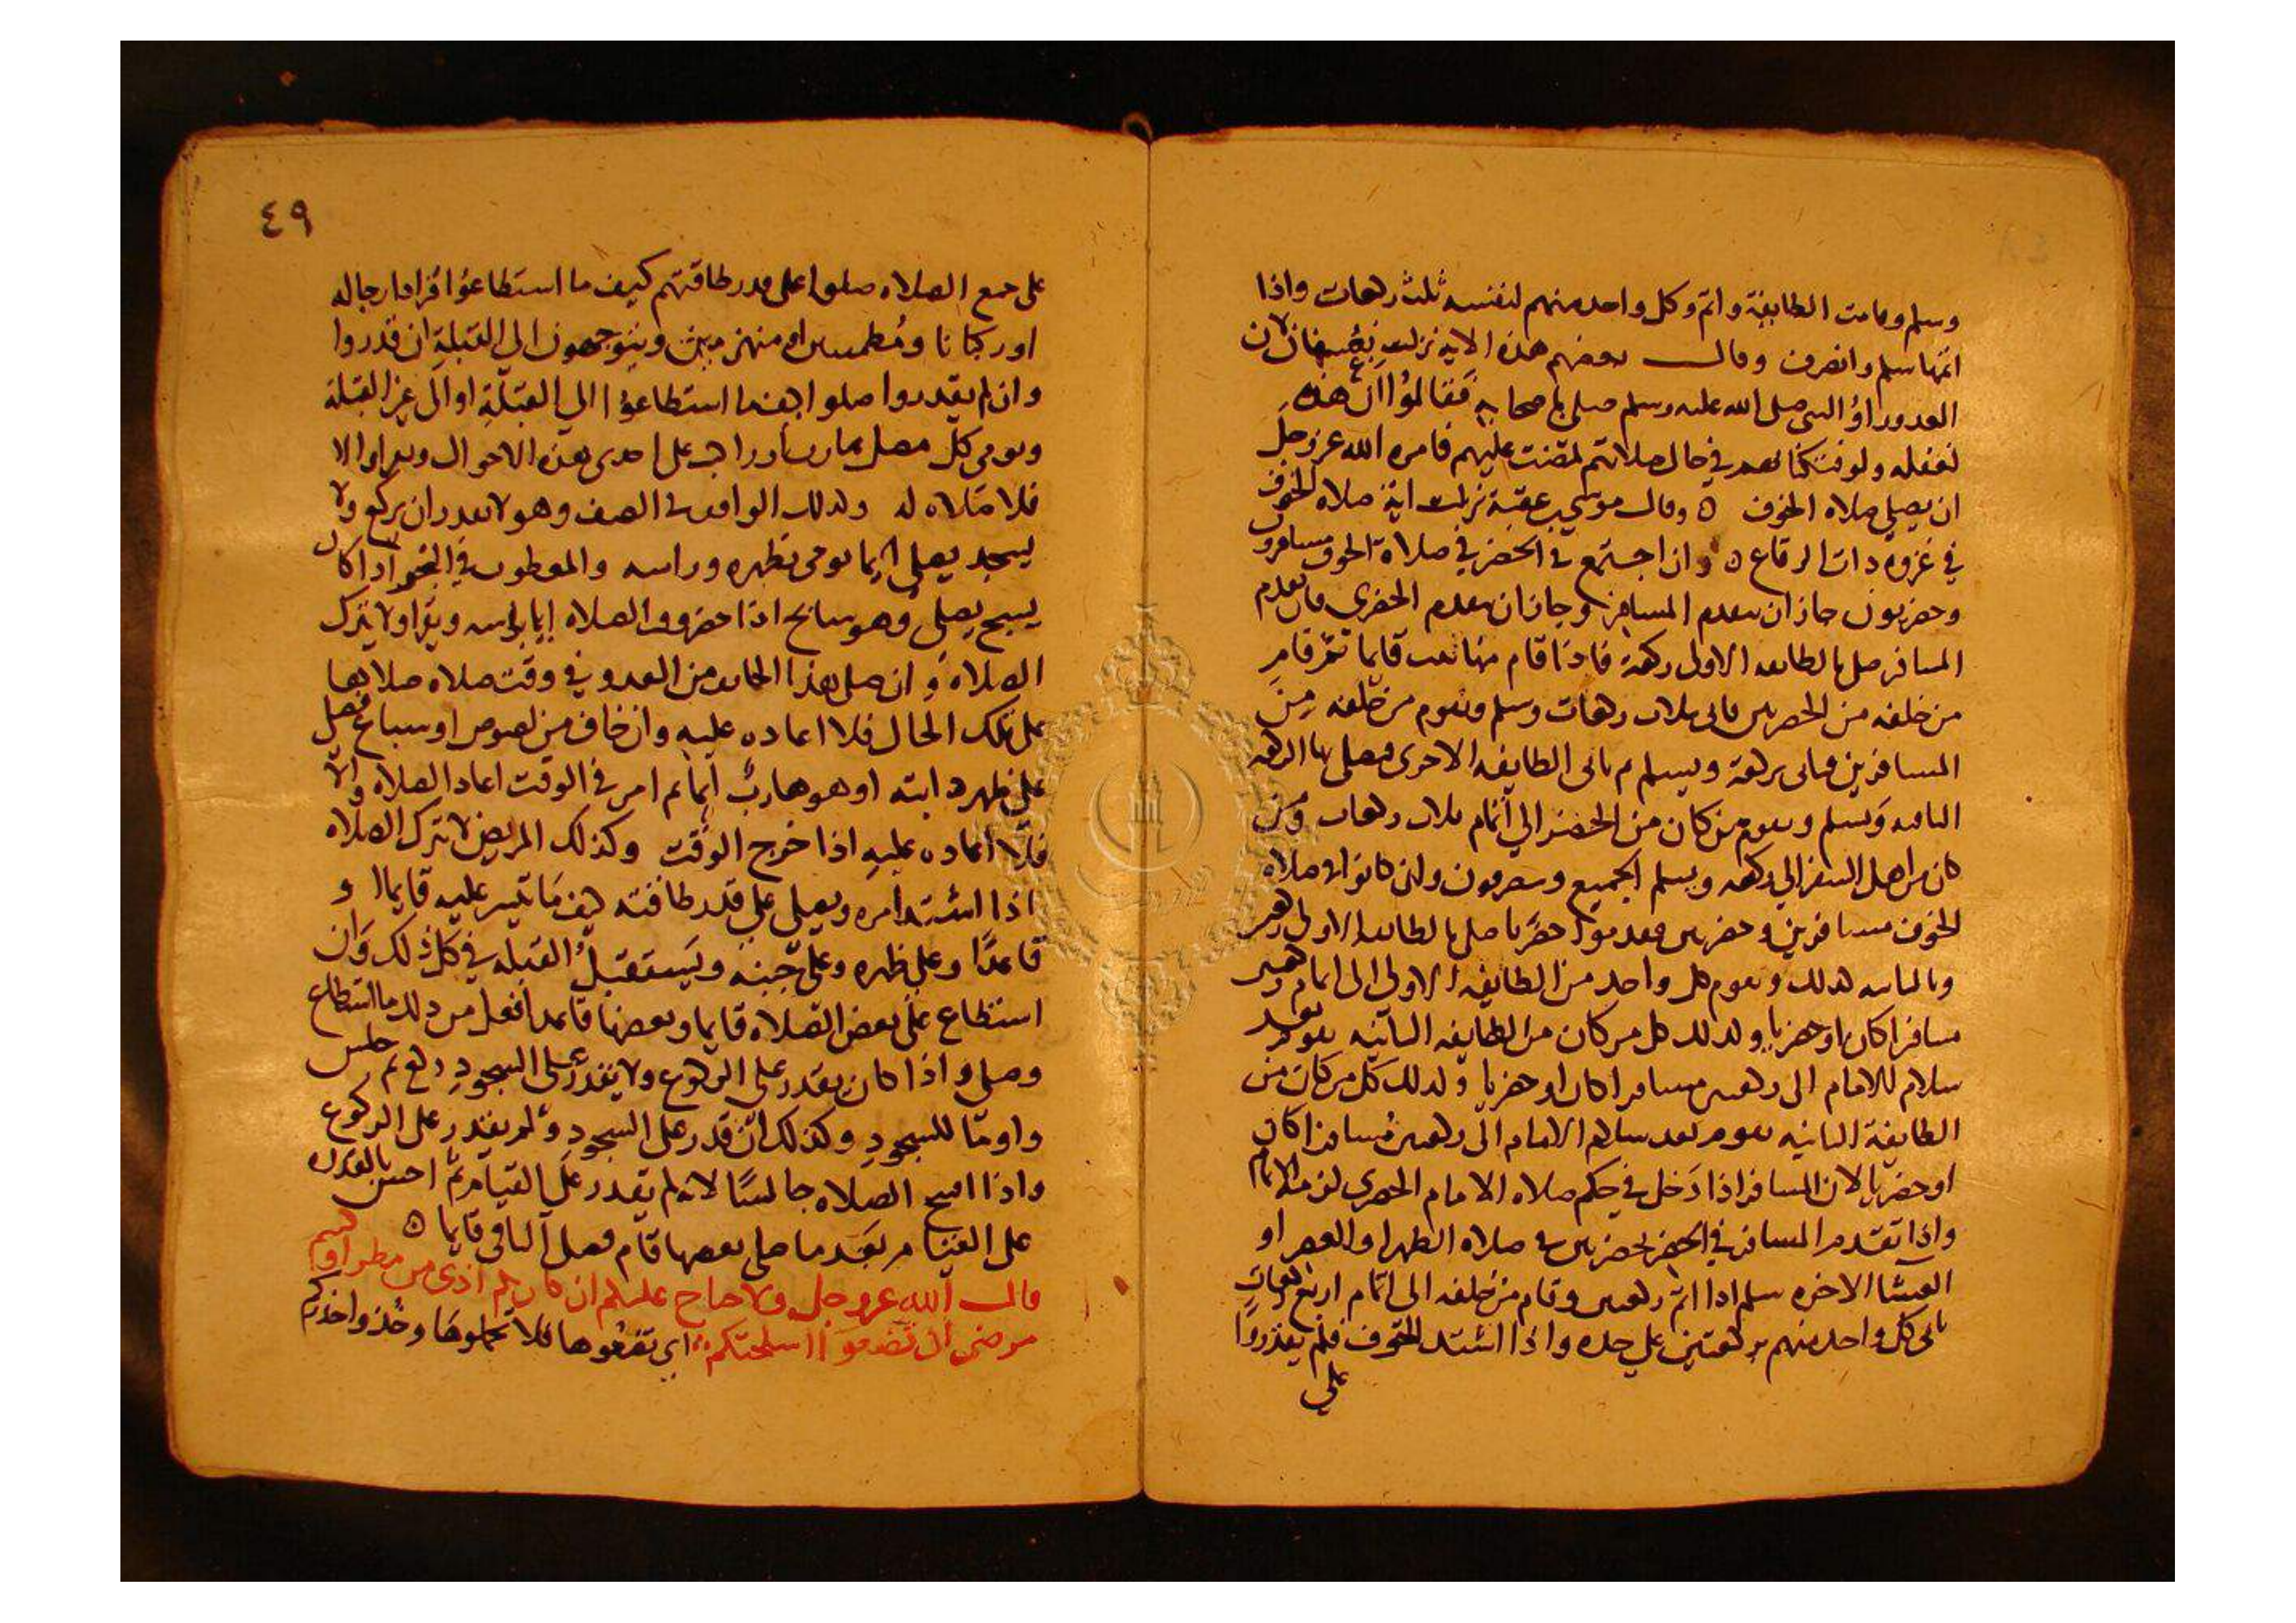 وسلم وقامت الطايفة واتم وكل واحد منهم لنفسه ثلث ركعات واذا
اتمها سلم وانصرف وقال بعضهم هذه الاية نزلت بعسفان لان
العدو راوا النبي صلى الله عليه وسلم صلى باصحابه فقالوا ان هذه
لغفله ولو في حال صلاتهم عليهم فامره الله عز وجل
ان يصلي صلاه الخوف ه وقال موسى بن عقبة نزلت اية صلاه الخوف
في غزوه ذات الرقاع ه وان اجتمع في الحضر في صلاة الخوف مسافرون
وحضريون جاز ان يتقدم المسافر وجاز ان يتقدم الحضري فان تقدم
المسافر صلى بالطايفه الاولى ركعة فاذا قام منها ثبت قايما ثم قام
من خلفه من الحضريين فاتى بثلاث ركعات وسلم ويقوم من خلفه من
المسافرين فياتى بركعة ويسلم ثم ياتى الطايفه الاخرى فيصلي بها الركعه
الثانيه ويسلم ويقوم من كان من الحضر الي اتمام ثلاث ركعات ومن
كان من اهل السفر الي ركعه ويسلم الجميع وينصرفون وان كانوا في صلاه
الخوف مسافرين وحضريين فقدموا حضريا صلى بالطايفه الاولى ركعتين
وبالثانيه كذلك ويقوم كل واحد من الطايفه الاولى الى اتمام ركعتين
مسافرا كان او حضريا وكذلك كل من كان من الطايفه الثانيه يقوم بعد
سلام الامام الى ركعتين مسافرا كان او حضريا وكذلك كل من كان من
الطايفة الثانيه يقوم بعد سلام الامام الى ركعتين مسافرا كان
او حضريا لان المسافر اذا دخل في حكم صلاه الامام الحضري لزمه الاتمام
واذا تقدم المسافر في الحضر بحضريين في صلاه الظهر او العصر او
العشا الاخره سلم اذا اتم ركعتين وقام من خلفه الى اتمام اربع ركعات
ياتى كل واحد منهم بركعتين على حده واذا اشتد الخوف فلم يقدروا
على
٤٩
على جميع الصلاه صلوا على قدر طاقتهم كيف ما استطاعوا قياما رجاله
او ركبانا ومطمئنين او منهزمين ويتوجهون الى القبلة ان قدروا
وان لم يقدروا صلوا كيف ما استطاعوا الي القبلة او الى غير القبلة
ويومي كل مصل على احدى هذه الاحوال والا
فلا صلاه له وكذلك الواقف في الصف وهو لا يقدر ان يركع ولا
يسجد يصلي ايما يومي بظهره وراسه في البحر اذا كان
يسبح يصلي وهو سابح اذا حضر وقت الصلاه ايما براسه ويقرا ولا يترك
الصلاه وان صلى هذا الخائف من العدو في وقت صلاه صلاتها
على تلك الحال فلا اعاده عليه وان خاف من لصوص او سباع فصلى
على ظهر دابته او هو هارب ثم امن في الوقت اعاد الصلاه والا
فلا اعاده عليه اذا خرج الوقت وكذلك المريض لا يترك الصلاه
اذا اشتد امره ويصلي على قدر طاقته كيف ما تيسر عليه قايما و
قاعدا وعلى ظهره وعلى جنبه ويستقبل القبله في كل ذلك وان
استطاع على بعض الصلاه قايما وبعضها قاعدا فعل من ذلك ما استطاع
وصلى واذا كان يقدر على الركوع ولا يقدر على السجود ركع ثم جلس
واوما للسجود وكذلك ان قدر على السجود ولم يقدر على الركوع
واذا افتتح الصلاه جالسا لانه لم يقدر على القيام ثم احس بالقدره
على القيام بعد ما صلى بعضها قام فصلى الباقي قايما ه
قال الله عز وجل ولا جناح عليكم ان كان بكم اذى من مطر او كنتم
مرضى ان تضعوا اسلحتكم اي تضعوها فلا تحملوها وخذوا حذركم